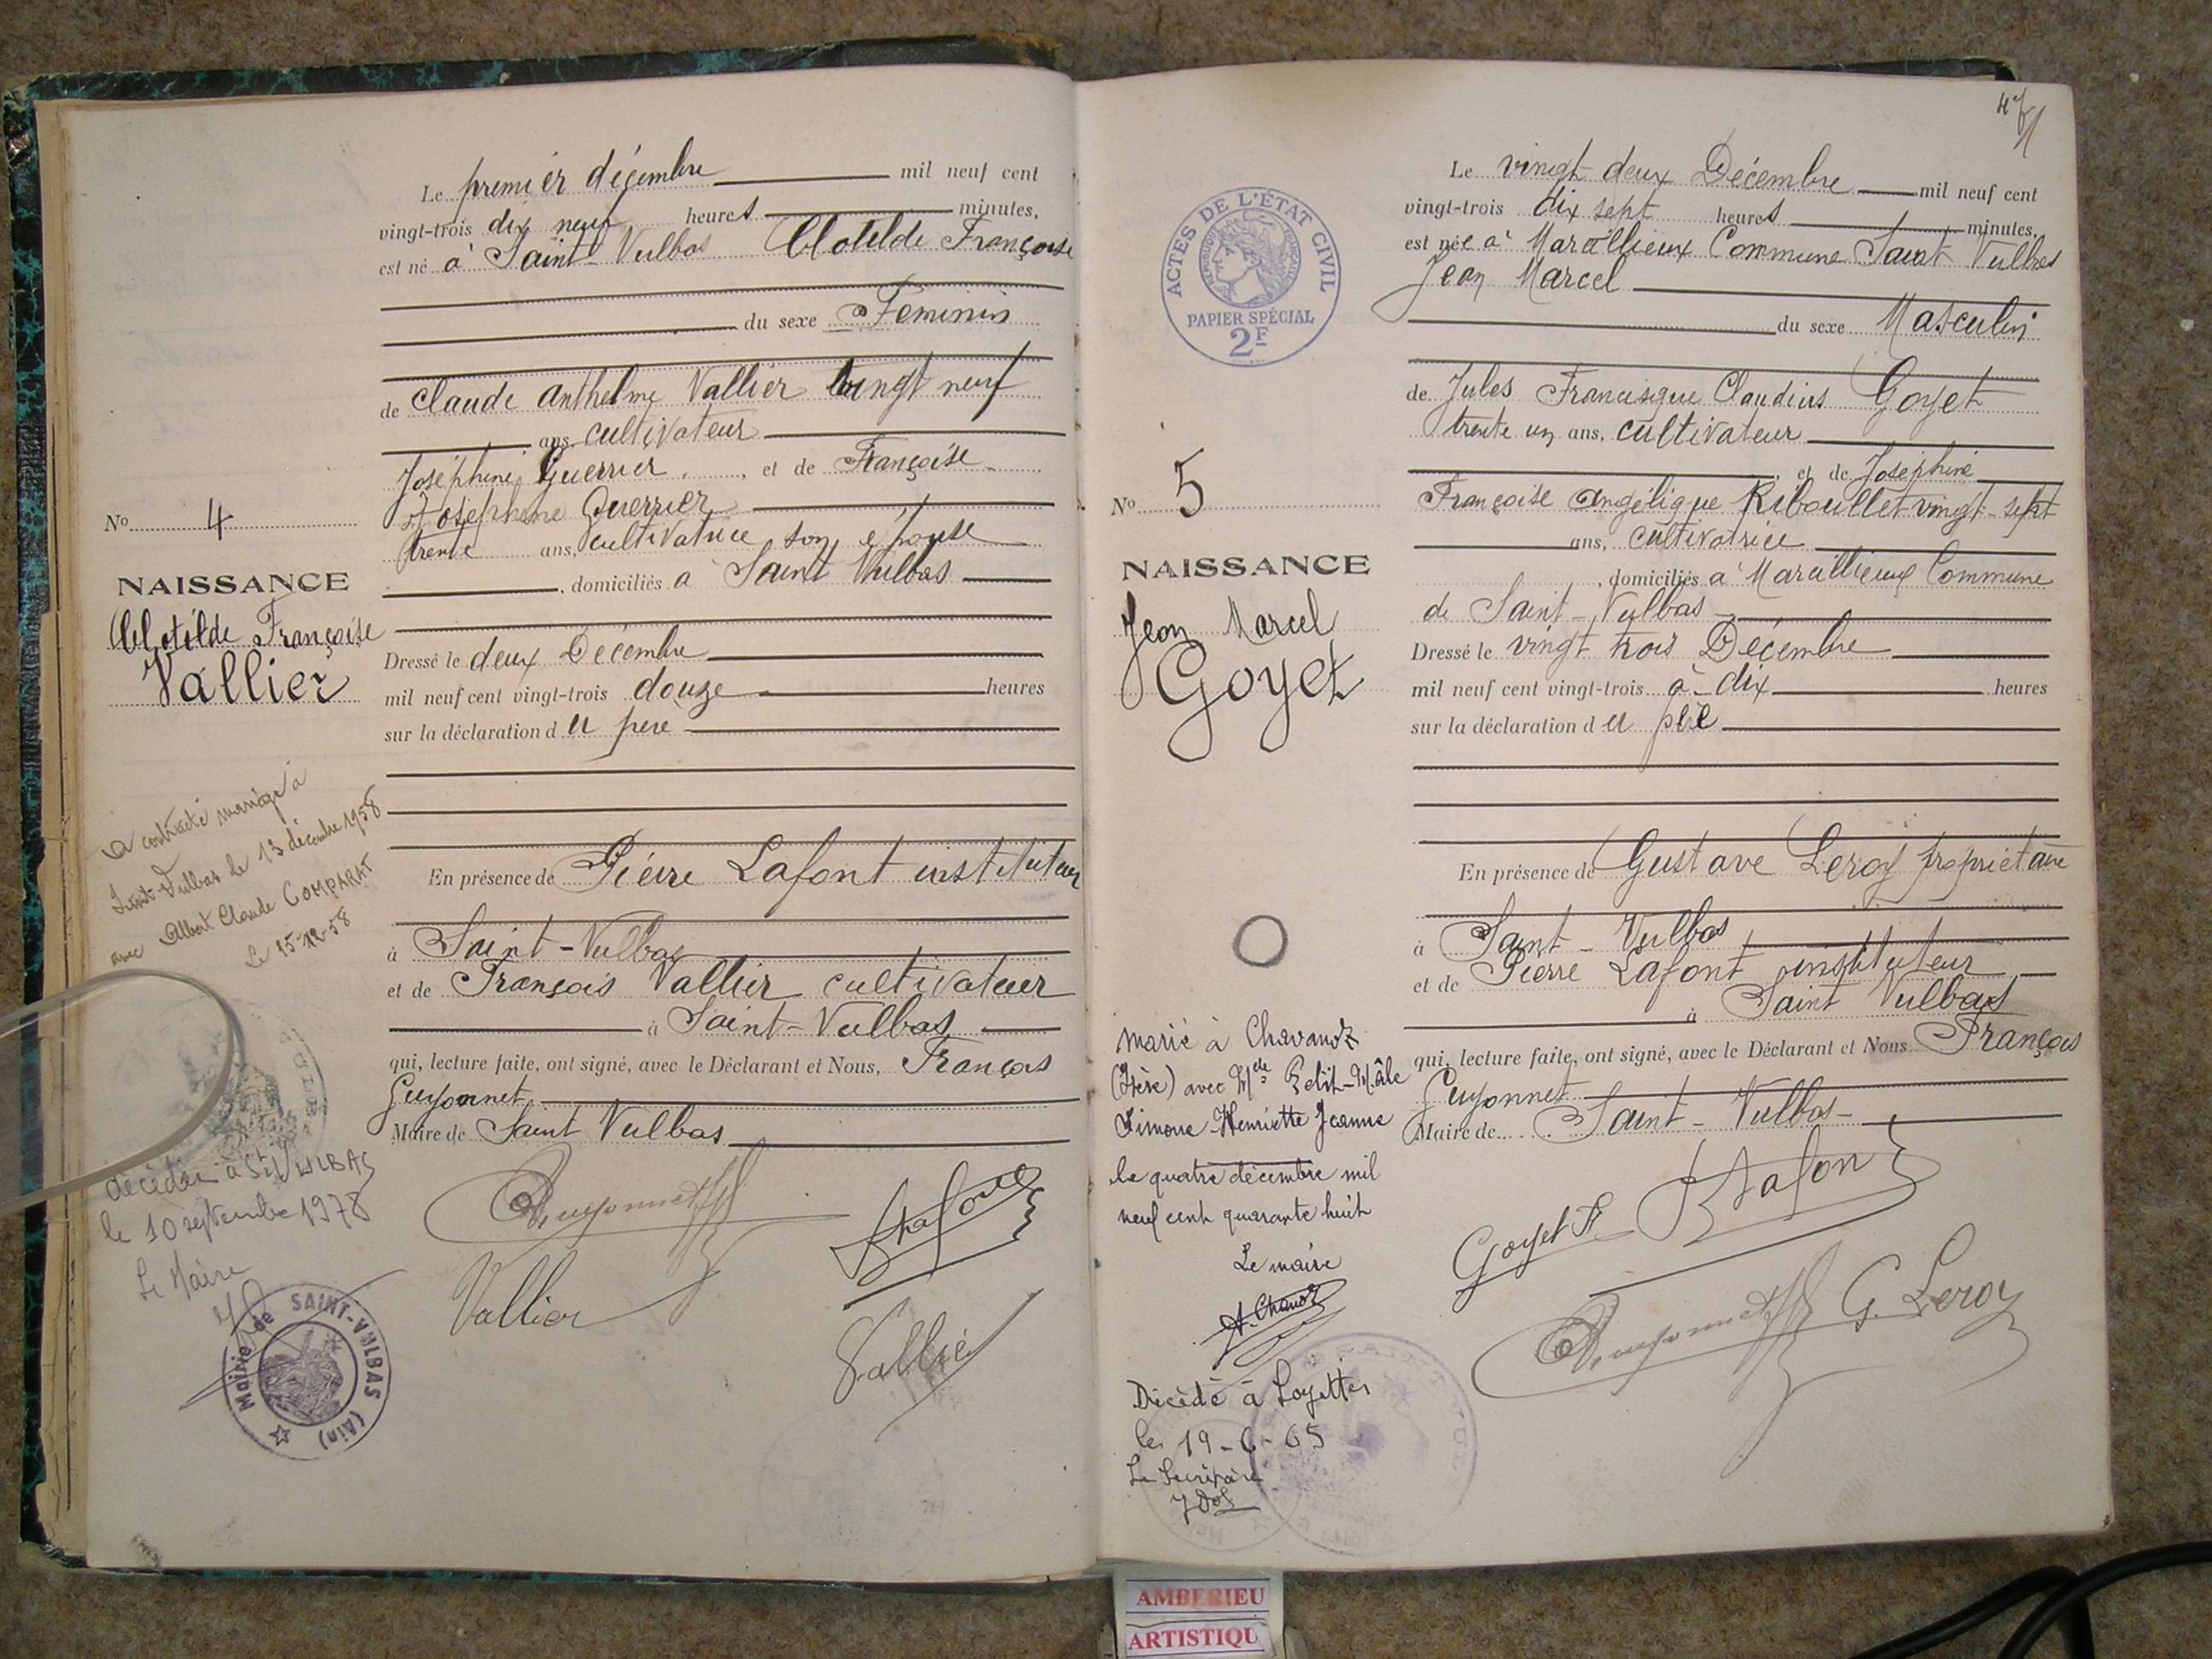 Le premier décembre mil neuf cent
vingt-trois dix neuf heures minutes,
est né à Saint-Vulbas Clotilde Françoise
du sexe Féminin
de Claude Anthelme Vallier vingt neuf
ans, cultivateur
Joséphine Guerrier, et de Françoise
Joséphine Guerrier
trente ans, cultivatrice son épouse
, domiciliés à Saint Vulbas
No 4
NAISSANCE
Clotilde Françoise
Vallier
Dressé le deux Décembre
mil neuf cent vingt-trois douze heures
sur la déclaration du père
a contracté mariage à
Saint-Vulbas le 13 décembre 1958
avec Albert Claude COMPARAT
Le 15-12-58
En présence de Pierre Lafont instituteur
à Saint-Vulbas
et de François Vallier cultivateur
à Saint-Vulbas
qui, lecture faite, ont signé, avec le Déclarant et Nous, François
Guyonnet
Maire de Saint Vulbas
décédée à St VULBAS
le 10 septembre 1978
Le Maire
Mairie de SAINT-VULBAS (Ain)
Guyonnet Lafont
Vallier
Vallier
47
ACTES DE L'ÉTAT CIVIL
RÉPUBLIQUE FRANÇAISE
PAPIER SPÉCIAL
2F
Le vingt deux Décembre mil neuf cent
vingt-trois dix sept heures minutes,
est née à Marcillieux Commune Saint Vulbas
Jean Marcel
du sexe Masculin
de Jules Francisque Claudius Goyet
trente un ans, cultivateur
, et de Joséphine
Françoise Angélique Riboullet vingt-sept
ans, cultivatrice
, domiciliés à Marcillieux Commune
de Saint-Vulbas
No 5
NAISSANCE
Jean Marcel
Goyet
Dressé le vingt trois Décembre
mil neuf cent vingt-trois à dix heures
sur la déclaration du père
En présence de Gustave Leroy propriétaire
à Saint-Vulbas
et de Pierre Lafont instituteur
à Saint Vulbas
qui, lecture faite, ont signé, avec le Déclarant et Nous François
Guyonnet
Maire de Saint-Vulbas
marié à Chavanoz
(Isère) avec Melle Petit-Mâle
Simone Henriette Jeanne
le quatre décembre mil
neuf cent quarante huit
Le maire
Goyet Lafont
Guyonnet G. Leroy
Décédé à Loyettes
le 19-6-65
Le Secrétaire
AMBERIEU
ARTISTIQU